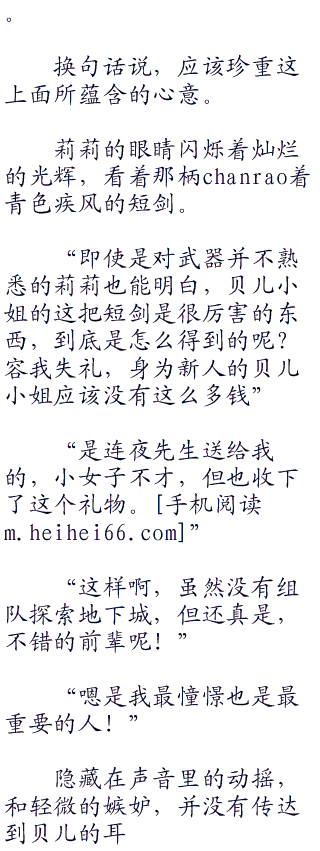 。
换句话说，应该珍重这
上面所蕴含的心意。
莉莉的眼睛闪烁着灿烂
的光辉，看着那柄chanrao着
青色疾风的短剑。
“即使是对武器并不熟
悉的莉莉也能明白，贝儿小
姐的这把短剑是很厉害的东
西，到底是怎么得到的呢？
容我失礼，身为新人的贝儿
小姐应该没有这么多钱”
“是连夜先生送给我
的，小女子不才，但也收下
了这个礼物。[手机阅读
m.heihei66.com]”
“这样啊，虽然没有组
队探索地下城，但还真是，
不错的前辈呢！”
“嗯是我最憧憬也是最
重要的人！”
隐藏在声音里的动摇，
和轻微的嫉妒，并没有传达
到贝儿的耳